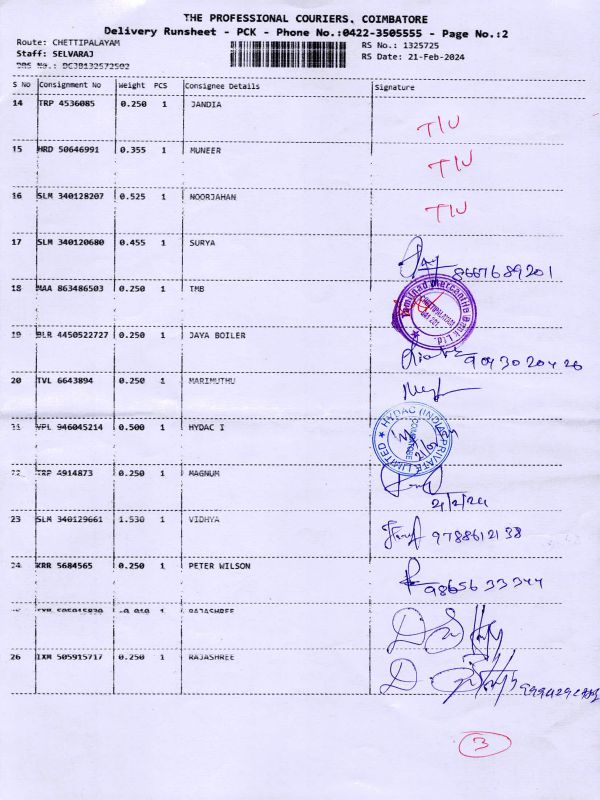 THE PROFESSIONAL COURIERS, COIMBATORE
Delivery Runsheet - PCK - Phone No.:0422-3505555 - Page No.:2
Route: CHETTIPALAYAM RS No.: 1325725
Staff: SELVARAJ RS Date: 21-Feb-2024
S No Consignment No Weight PCS Consignee Details Signature
14 TRP 4536085 0.250 1 JANDIA
T/U
15 HRD 50646991 0.355 1 MUNEER
T/U
16 SLM 340128207 0.525 1 NOORJAHAN
T/U
17 SLM 340120680 0.455 1 SURYA
8667689201
18 MAA 863486503 0.250 1 TMB
Tamilnad Mercantile Bank Ltd.
CHETTIPALAYAM
19 BLR 4450522727 0.250 1 JAYA BOILER
20 TVL 6643894 0.250 1 MARIMUTHU
21 VPL 946045214 0.500 1 HYDAC I
HYDAC (INDIA) PRIVATE LIMITED
COIMBATORE
22 TRP 4914873 0.250 1 MAGNUM
21/2/24
23 SLM 340129661 1.530 1 VIDHYA
9788612138
24 KRR 5684565 0.250 1 PETER WILSON
9865633344
RAJASHREE
26 IXM 505915717 0.250 1 RAJASHREE
3